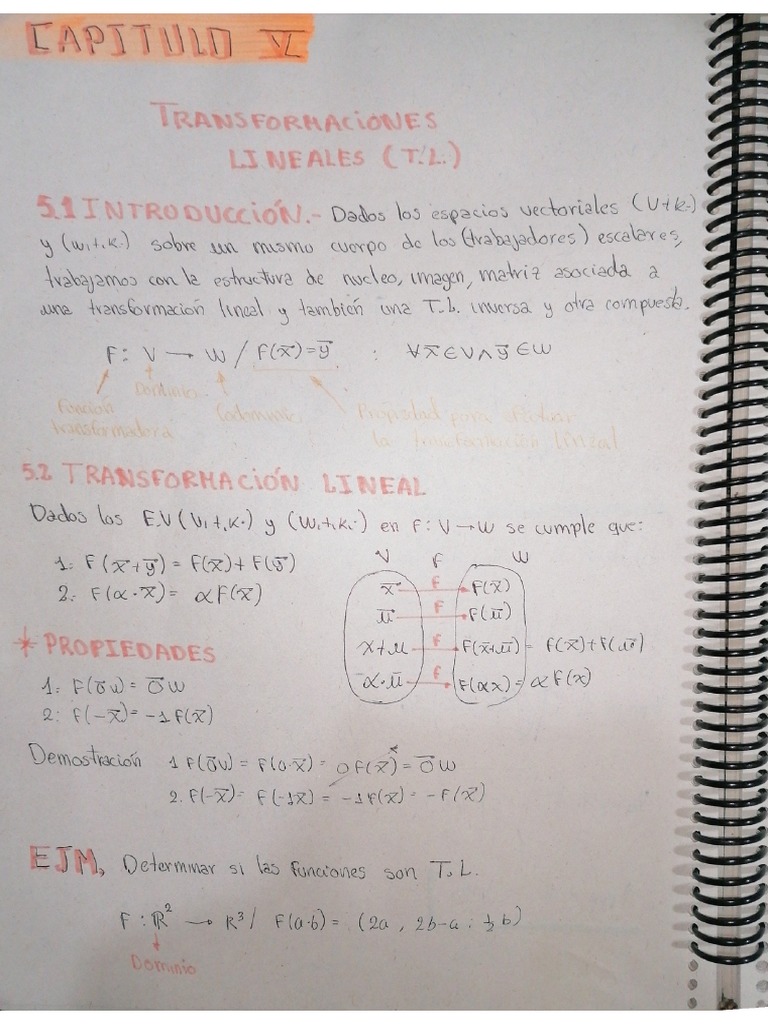 CAPITULO VI
TRANSFORMACIONES
LINEALES (T.L.)
5.1 INTRODUCCIÓN.- Dados los espacios vectoriales (V,+,K,·)
y (W,+,K,·) sobre un mismo cuerpo de los (trabajadores) escalares,
trabajamos con la estructura de nucleo, imagen, matriz asociada a
una transformación lineal y también una T.L. inversa y otra compuesta.
F: V → W / F(x̄)=ȳ : ∀x̄∈V∧ȳ∈W
Función Dominio Codominio Propiedad para efectuar
transformadora la transformación lineal
5.2 TRANSFORMACIÓN LINEAL
Dados los E.V (V,+,K·) y (W,+,K,·) en F: V→W se cumple que:
1: F(x̄+ȳ) = F(x̄)+F(ȳ)
2: F(α·x̄)= αF(x̄)
V F W
x̄ F F(x̄)
ū F F(ū)
x+u F F(x̄+ū) = F(x̄)+F(ū)
α·ū F F(αx) = αF(x)
* PROPIEDADES
1: F(ōv)= ōw
2: F(-x̄)= -1F(x̄)
Demostración 1 F(ōv) = F(0·x̄) = 0F(x̄) = ōw
2. F(-x̄)= F(-1x̄) = -1F(x̄) = -F(x̄)
EJM, Determinar si las funciones son T.L.
F: ℝ² → R³/ F(a·b)= (2a, 2b-a; ½b)
Dominio